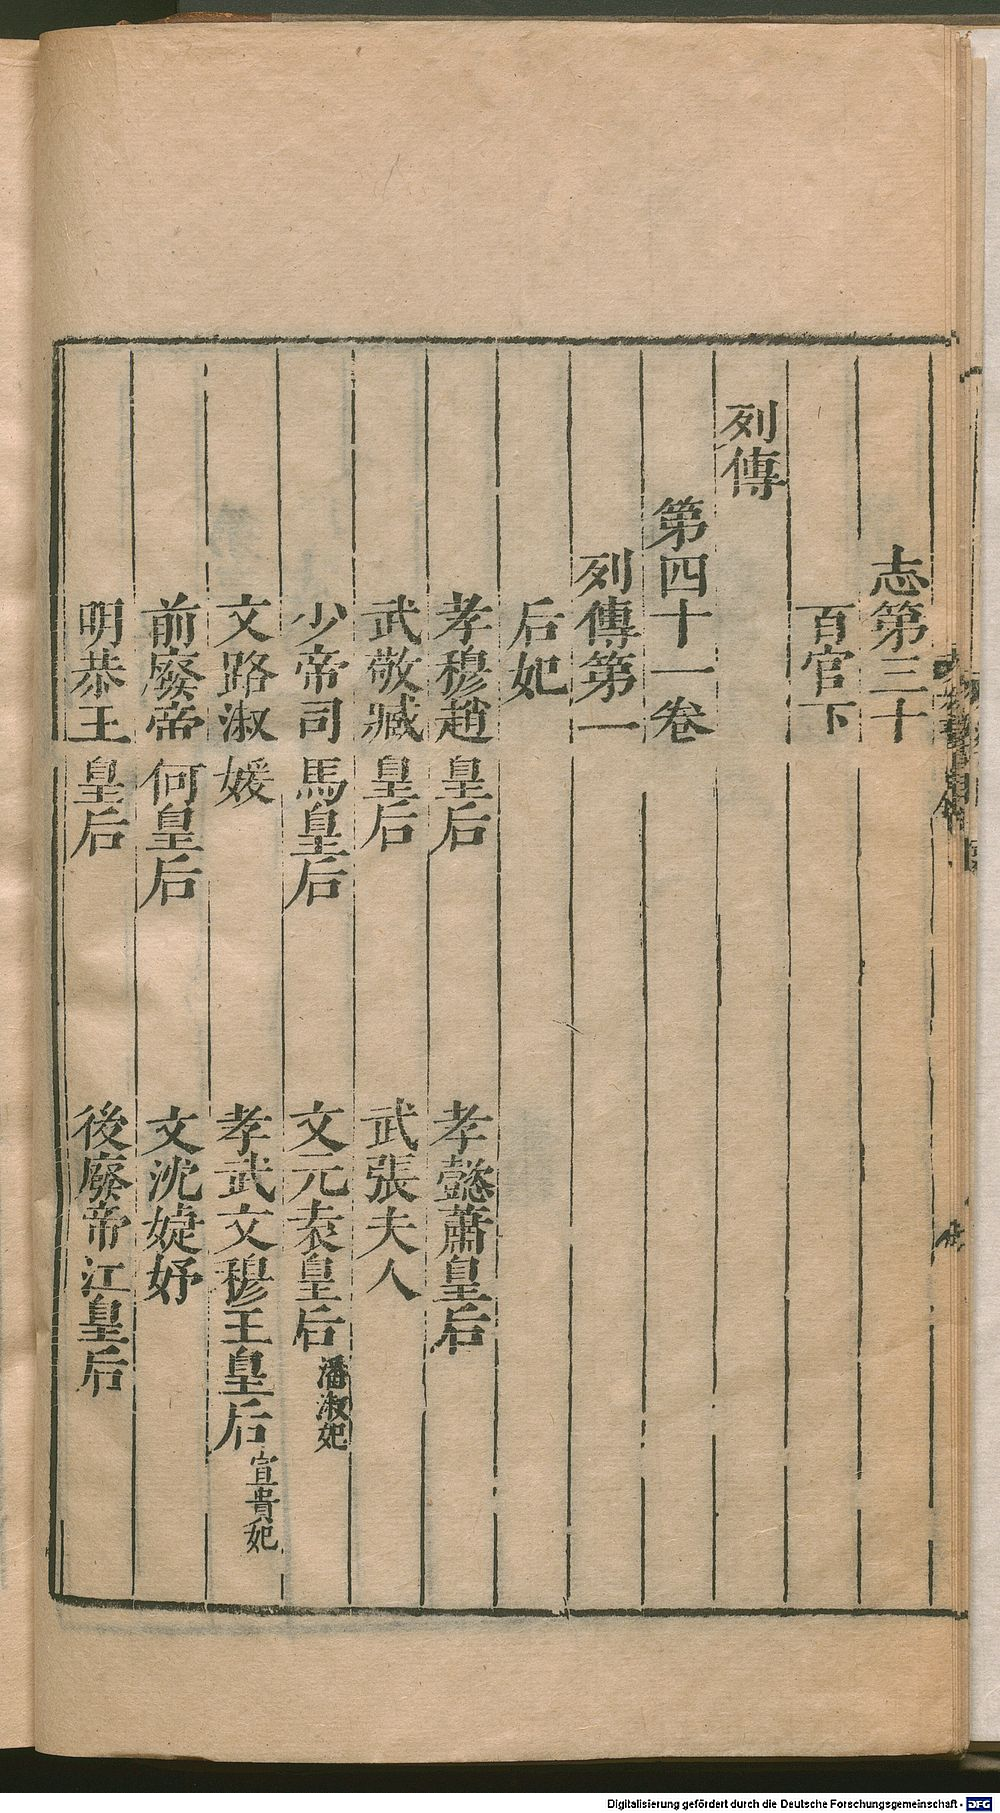 志第三十
百官下
列傳
第四十一卷
列傳第一
后妃
孝穆趙皇后 孝懿蕭皇后
武敬臧皇后 武張夫人
少帝司馬皇后 文元袁皇后 潘淑妃
文路淑媛 孝武文穆王皇后 宣貴妃
前廢帝何皇后 文沈婕妤
明恭王皇后 後廢帝江皇后
Digitalisierung gefördert durch die Deutsche Forschungsgemeinschaft - DFG